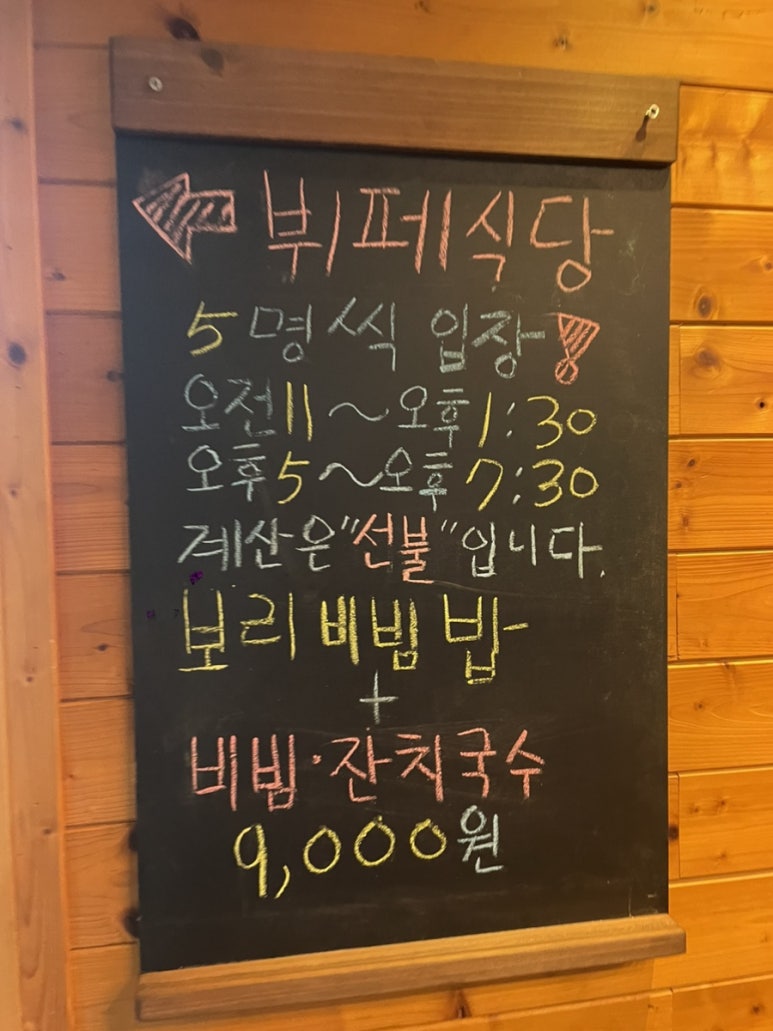 뷔페식당
5명씩 입장!
오전11~오후1:30
오후5~오후7:30
계산은"선불"입니다.
보리비빔밥
+
비빔·잔치국수
9,000원